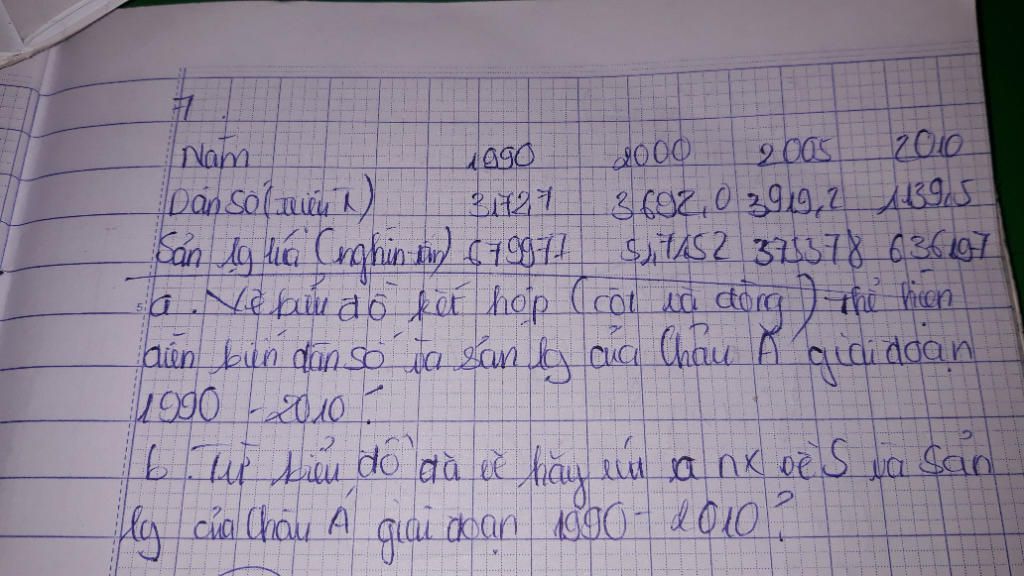 7.
Năm 1990 2000 2005 2010
Dân số (triệu) 3172,7 3692,0 3919,2 1139,5
Sản lg lúa (nghìn tấn) 679977 517152 375378 636197
a. Vẽ biểu đồ kết hợp (cột và đờng) thể hiện
diễn biến dân số và sản lg của Châu Á giai đoạn
1990 - 2010?
b. Từ biểu đồ đã vẽ hãy rút ra nx về S và sản
lg của Châu Á giai đoạn 1990 - 2010?